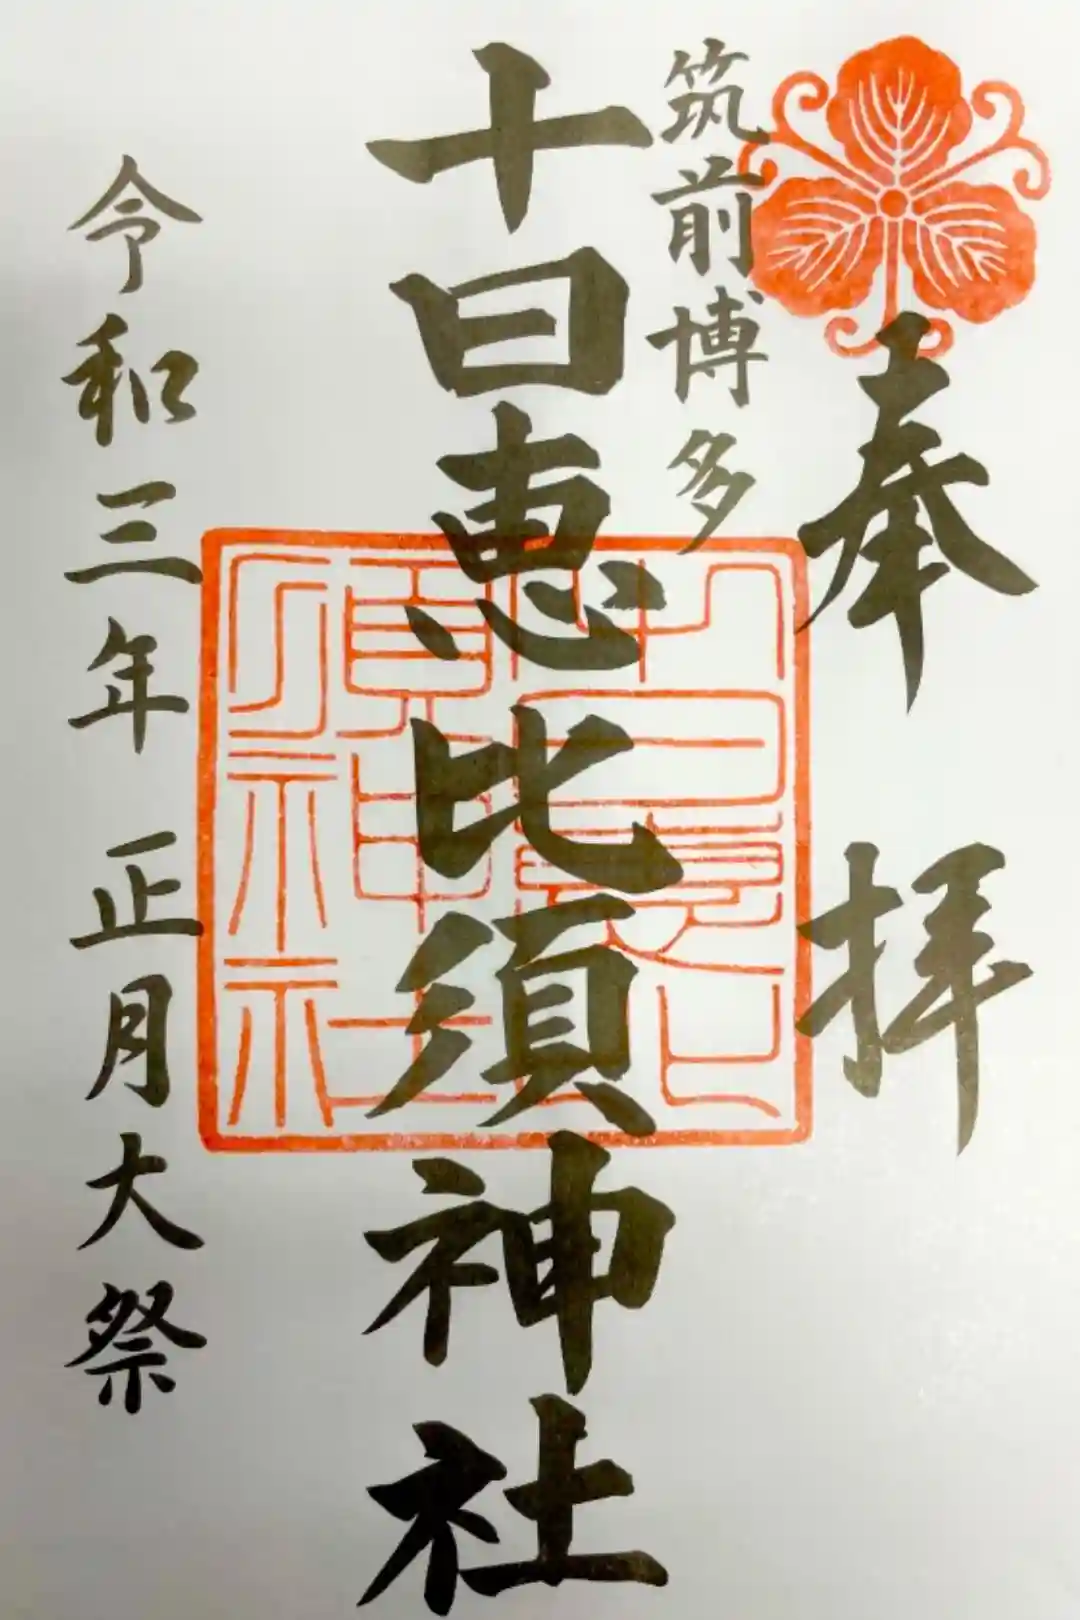 奉拝
筑前博多
十日恵比須神社
令和三年 正月大祭
十日恵比
須神社